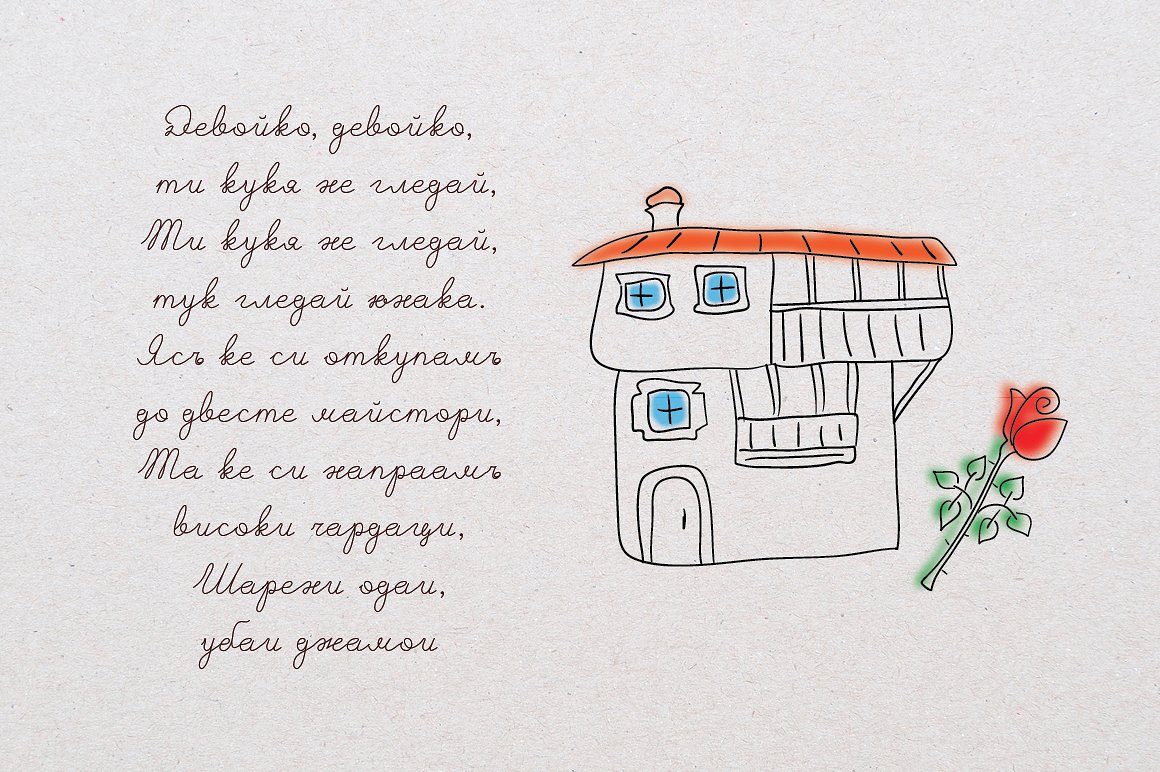 Девойко, девойко,
ти кукя не гледай,
Ти кукя не гледай,
тук гледай юнака.
Ясъ ке си откупамъ
до двесте майстори,
Та ке си напраамъ
високи чардаци,
Шарени одаи,
убаи джамои